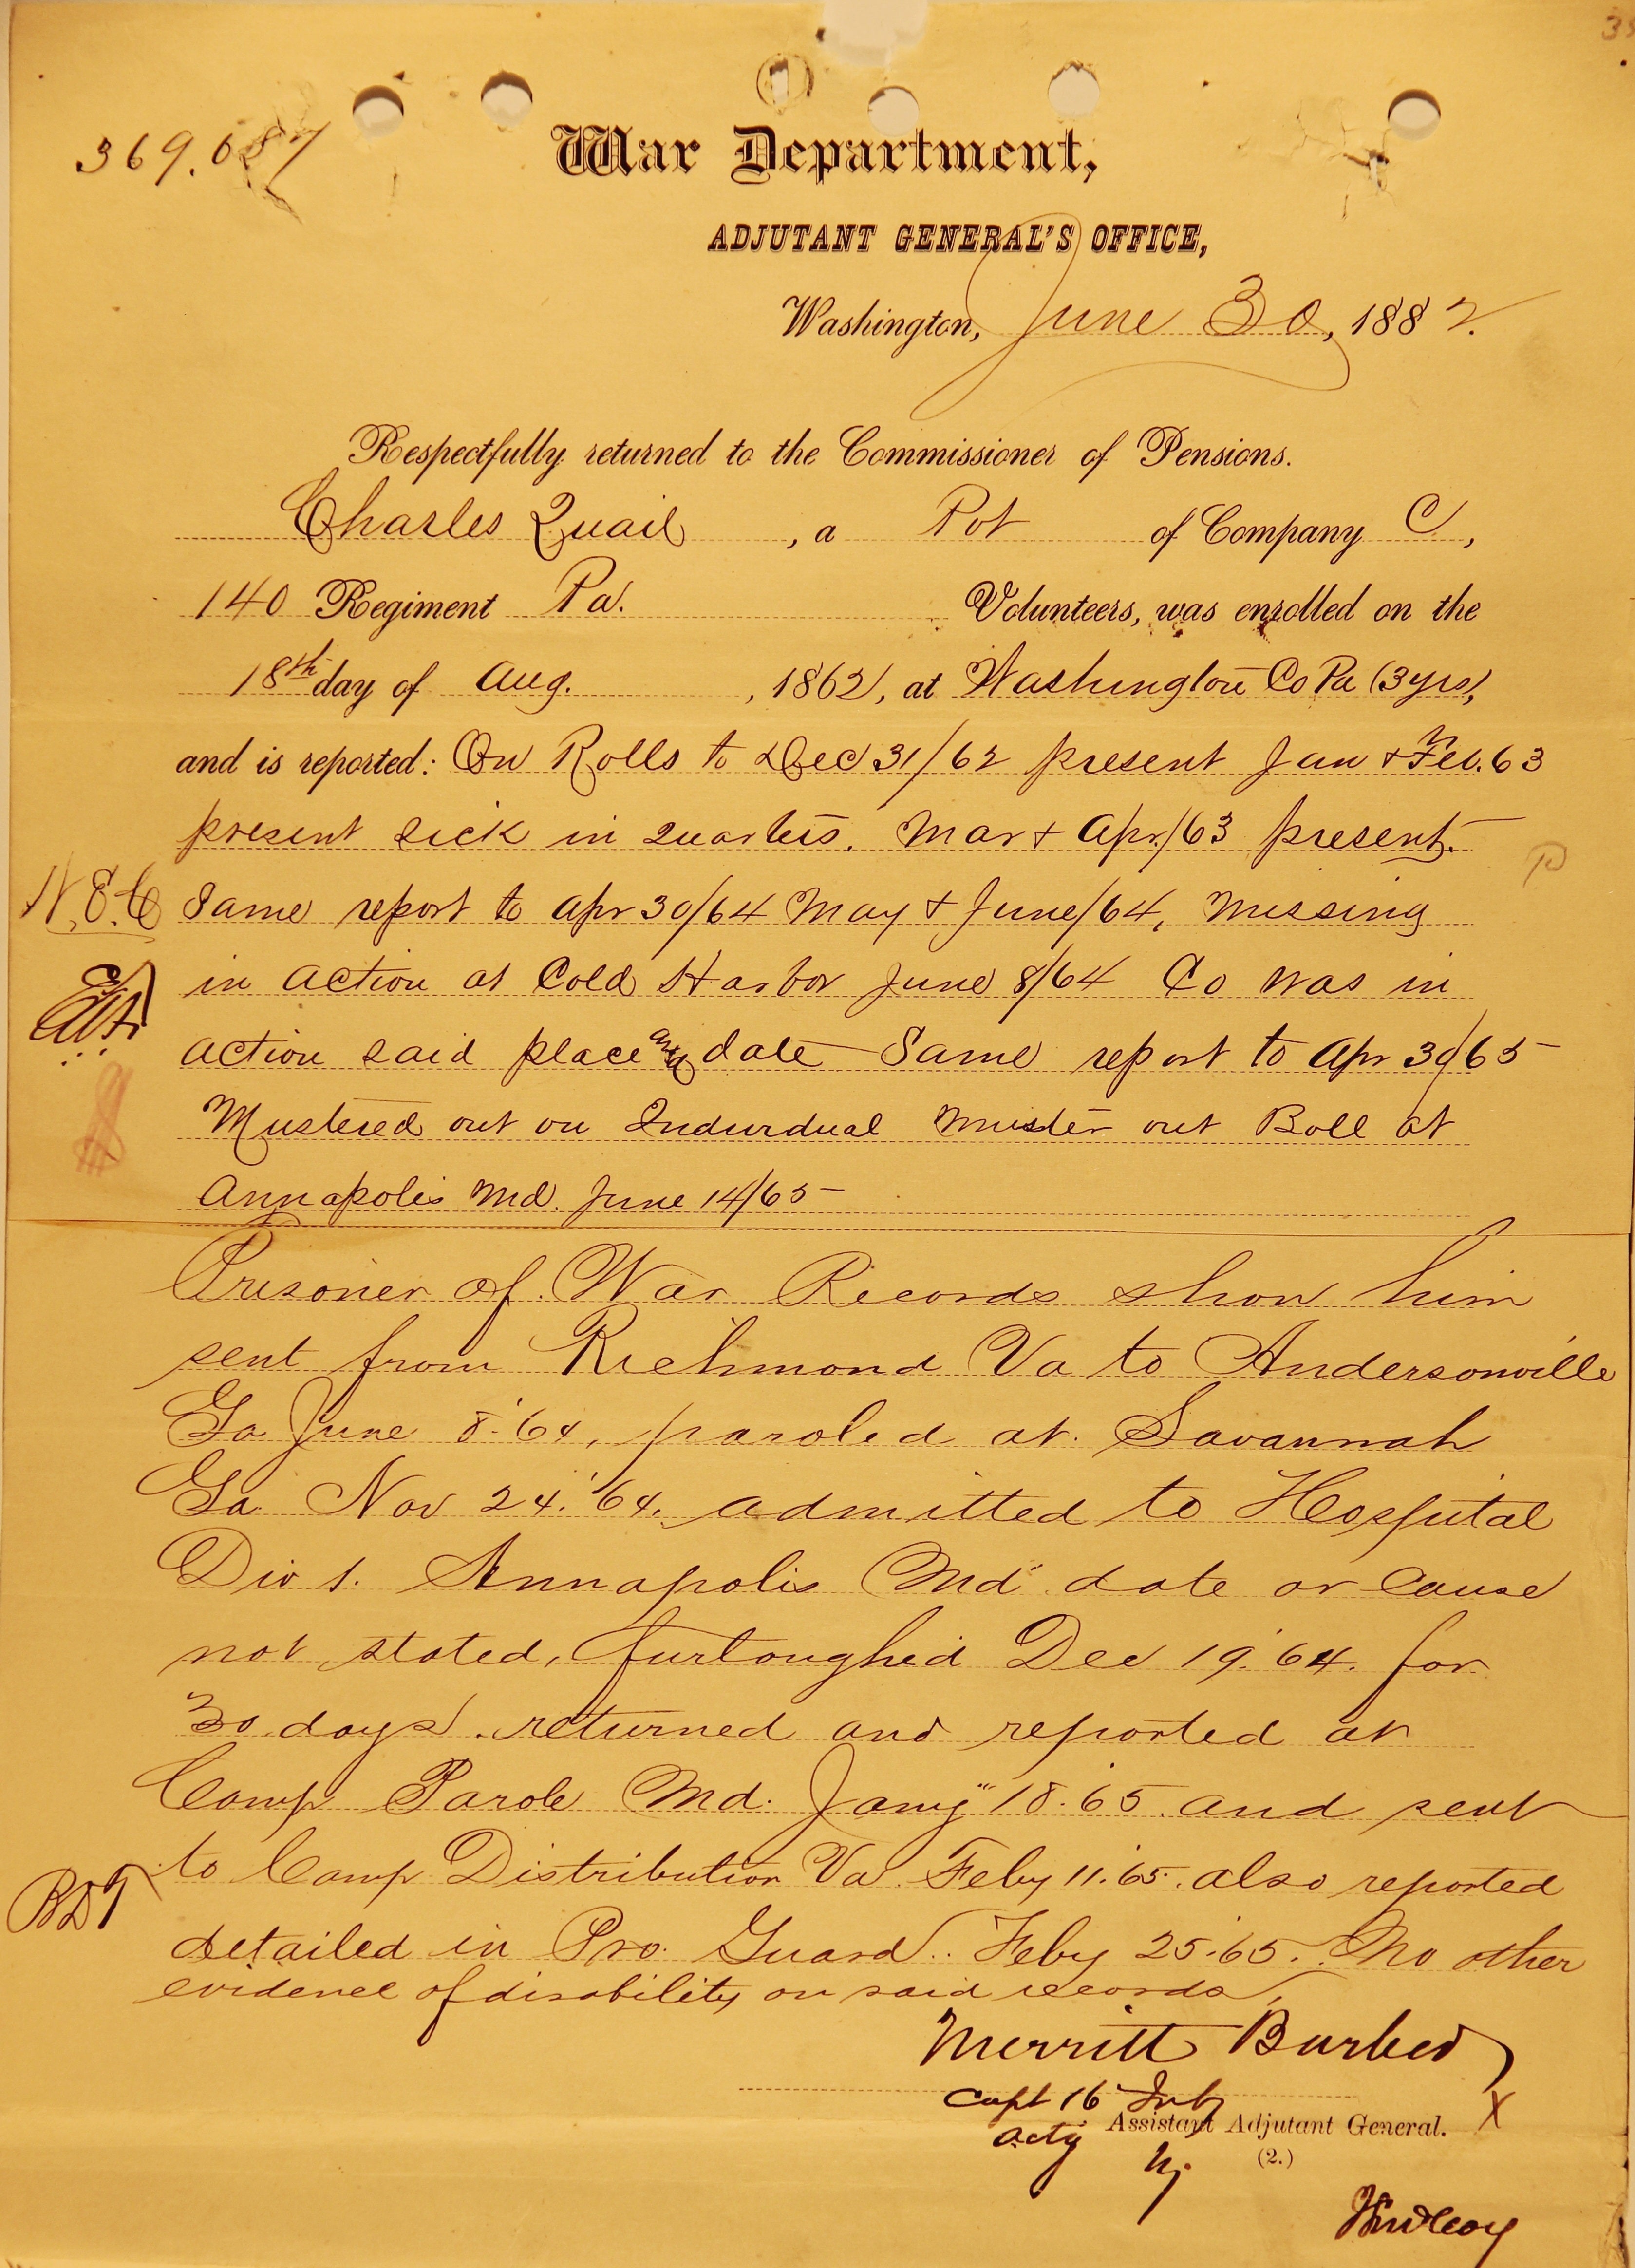 369.087
War Department,
ADJUTANT GENERAL'S OFFICE,
Washington, June 30, 1882.
Respectfully returned to the Commissioner of Pensions.
Charles Quail, a Pvt of Company C,
140 Regiment Pa. Volunteers, was enrolled on the
18th day of Aug., 1862, at Washington Co Pa (3yrs),
and is reported: On Rolls to Dec 31/62 present Jan & Feb. 63
present sick in quarters. Mar & Apr./63 present.
N.E.C. Same report to Apr 30/64 May & June/64, missing
in action at Cold Harbor June 8/64 Co was in
action said place and date Same report to Apr 30/65
Mustered out on Individual Muster out Roll at
Annapolis Md. June 14/65
Prisoner of War Records show him
sent from Richmond Va to Andersonville
Ga June 8. 64, paroled at Savannah
Ga Nov 24. 64. admitted to Hospital
Div 1. Annapolis Md date or cause
not stated, furloughed Dec 19. 64. for
30 days. returned and reported at
Camp Parole Md. Jany 18. 65. and sent
to Camp Distribution Va. Feby 11. 65. also reported
detailed in Pro. Guard. Feby 25. 65. No other
evidence of disability on said records,
Merritt Barber
Capt 16 Inf
Actg Assistant Adjutant General. X
(2.)